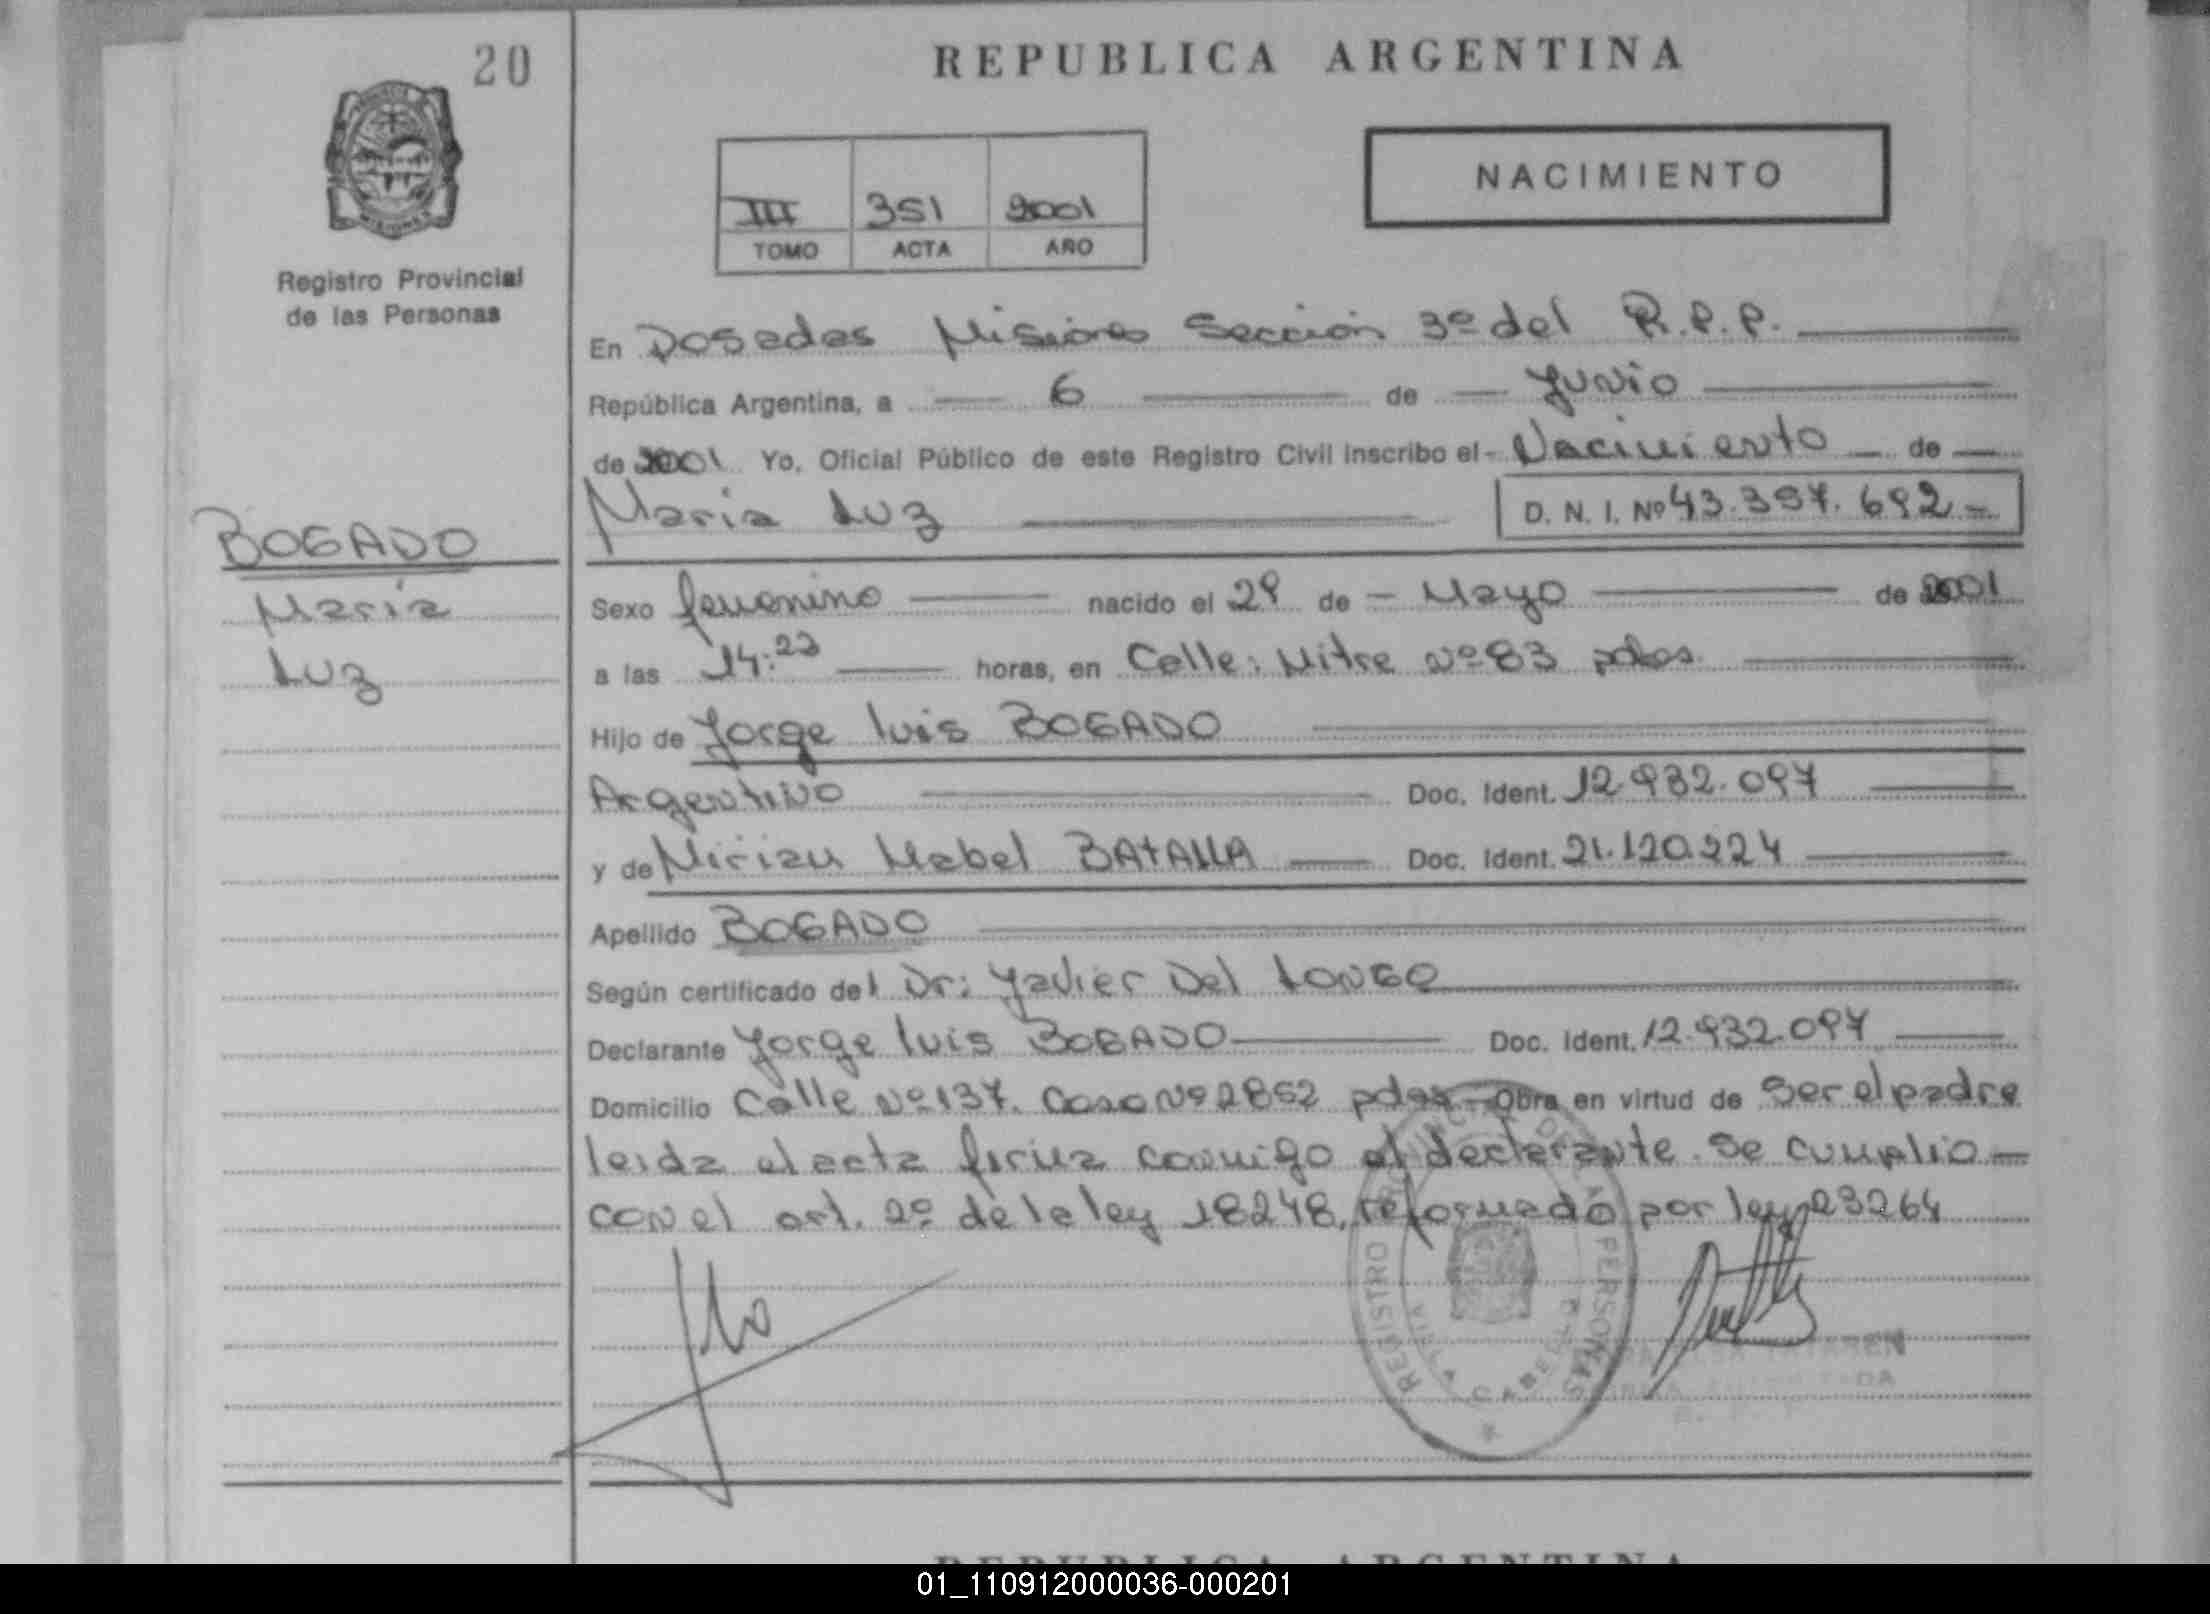 20
REPUBLICA ARGENTINA
NACIMIENTO
III 351 2001
TOMO ACTA AÑO
Registro Provincial
de las Personas
En Posadas Misiones Sección 3º del R.P.P.
República Argentina, a 6 de Junio
de 2001 Yo, Oficial Público de este Registro Civil inscribo el Nacimiento de
María Luz D. N. I. Nº 43.397.692
BOGADO
María
Luz
Sexo femenino nacido el 29 de Mayo de 2001
a las 14:23 horas, en Calle: Mitre Nº 83 pdas.
Hijo de Jorge Luis BOGADO
Argentino Doc. Ident. 12.932.097
y de Mirian Mabel BATALLA Doc. Ident. 21.120.224
Apellido BOGADO
Según certificado del Dr: Javier Del LONGO
Declarante Jorge Luis BOGADO Doc. Ident. 12.932.097
Domicilio Calle Nº 137. Casa Nº 2852 pdas Obra en virtud de ser el padre
leida el acta firma conmigo el declarante. Se cumplio
con el art. 2º de la ley 18248, reformado por ley 23264
REGISTRO PROVINCIAL DE LAS PERSONAS
VILLA CABELLO
01_110912000036-000201